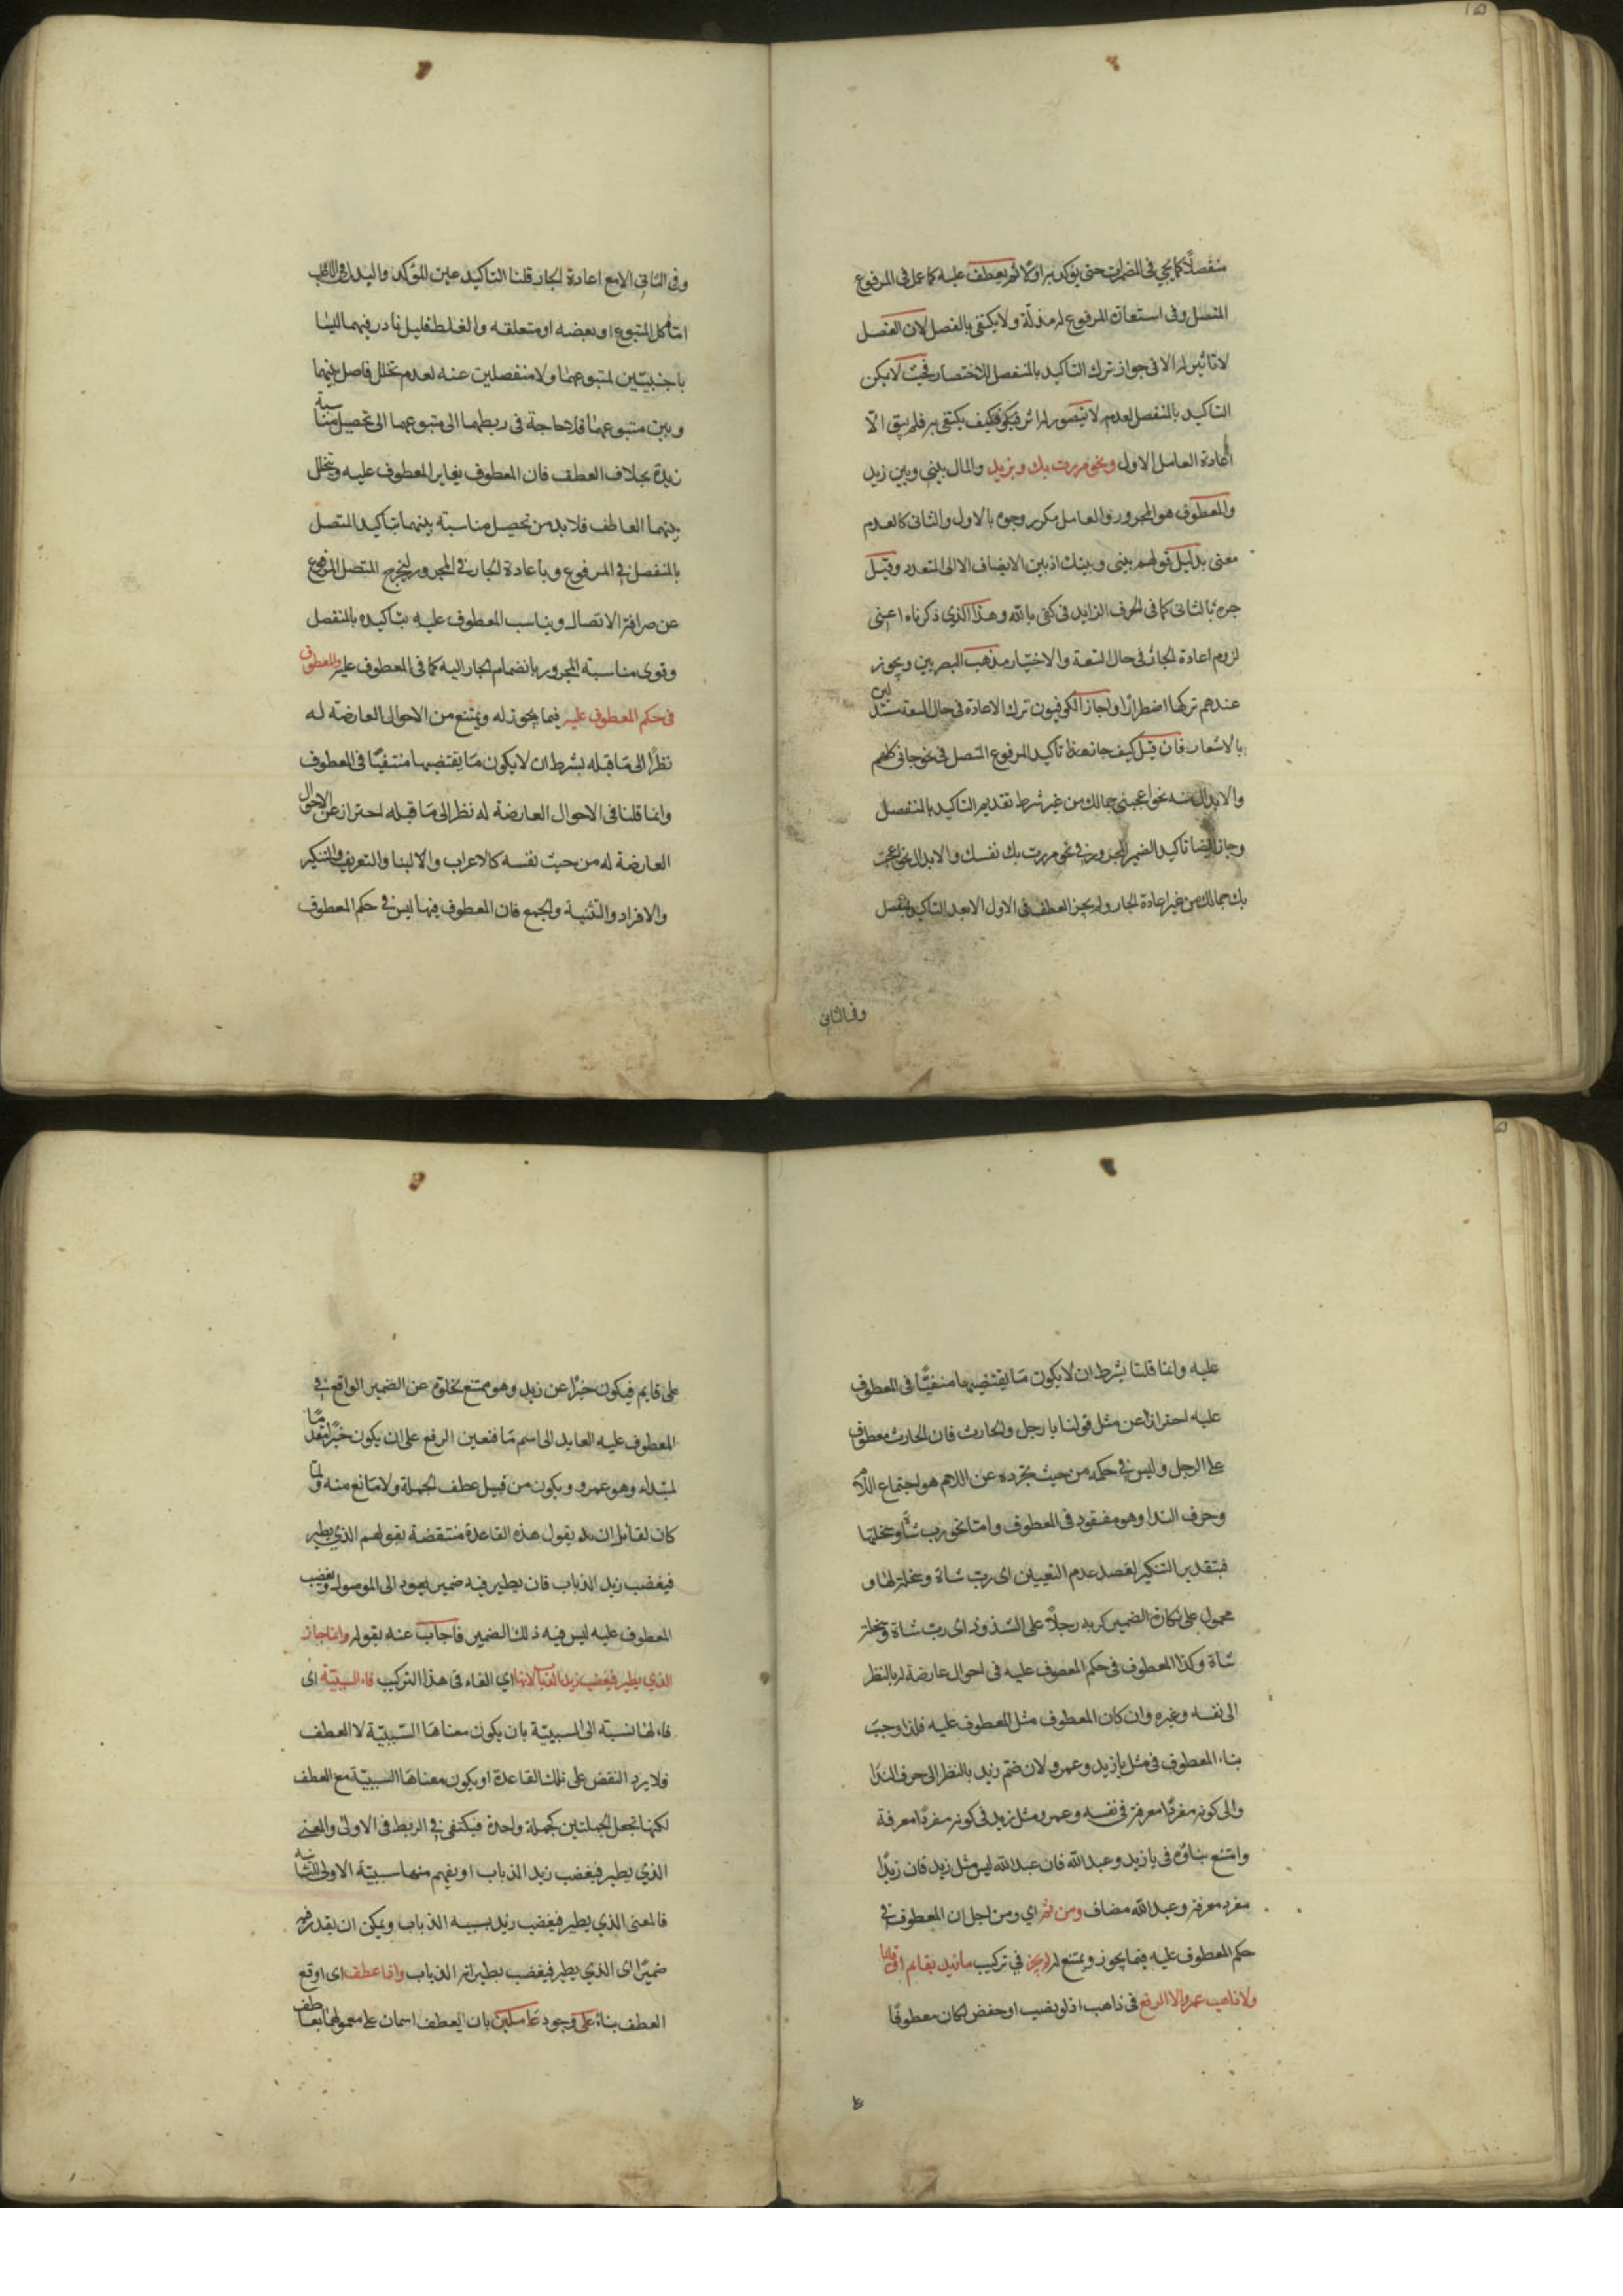 منفصلا كما يجي في المضمرات حتى يؤكد به اولا ثم يعطف عليه كما عمل في المرفوع
المتصل وفي استعارة المرفوع له مذلة ولا يكتفي بالفصل لان الفصل
لا تاثير له الا في جواز ترك التاكيد بالمنفصل للاختصار فحيث لا يمكن
التاكيد بالمنفصل لعدمه لا يتصور له اثر فكيف يكتفى به فلم يبق الا
اعادة العامل الاول ونحو مررت بك وبزيد والمال بيني وبين زيد
والمعطوف هو المجرور والعامل مكرر وجره بالاول والثاني كالعدم
معنى بدليل قولهم بيني وبينك اذ بين لا يضاف الا الى المتعدد وقيل
جره بالثاني كما في الحرف الزايد في كفى بالله وهذا الذي ذكرناه اعني
لزوم اعادة الجار في حال السعة والاختيار مذهب البصريين ويجوز
عندهم تركها اضطرارا واجاز الكوفيون ترك الاعادة في حال السعة مستدلين
بالاشعار فان قيل كيف جاز هذا تاكيد المرفوع المتصل في نحو جاؤني كلهم
والابدال منه نحو اعجبني جمالك من غير شرط تقديم التاكيد بالمنفصل
وجاز ايضا تاكيد الضمير المجرور في نحو مررت بك نفسك والابدال نحو اعجبت
بك جمالك من غير اعادة الجار ولم يجز العطف في الاول الا بعد التاكيد بالمنفصل
وفي الثاني
وفي الثاني الا مع اعادة الجار قلنا التاكيد عين المؤكد والبدل في الاغلب
اما كل المتبوع او بعضه او متعلقه والغلط قليل نادر فهما ليسا
باجنبيين لمتبوعهما ولا منفصلين عنه لعدم تخلل فاصل بينهما
وبين متبوعهما فلا حاجة في ربطهما الى متبوعهما الى تحصيل مناسبة
زيدة بخلاف العطف فان المعطوف يغاير المعطوف عليه ويتخلل
بينهما العاطف فلا بد من تحصيل مناسبة بينهما بتاكيد المتصل
بالمنفصل في المرفوع وباعادة الجار في المجرور ليخرج المتصل المرفوع
عن صرافة الاتصال ويناسب المعطوف عليه بتاكيده بالمنفصل
وقوى مناسبة المجرور بانضمام الجار اليه كما في المعطوف عليه والمعطوف
في حكم المعطوف عليه فيما يجوز له ويمتنع من الاحوال العارضة له
نظرا الى ما قبله بشرط ان لا يكون ما يقتضيها منتفيا في المعطوف
وانما قلنا في الاحوال العارضة له نظر الى ما قبله احتراز عن الاحوال
العارضة له من حيث نفسه كالاعراب والالبنا والتعريف والتنكير
والافراد والتثنية والجمع فان المعطوف فيها ليس في حكم المعطوف
عليه وانما قلنا بشرط ان لا يكون ما يقتضيها منفيا في المعطوف
عليه احترازا عن مثل قولنا يا رجل والحارث فان الحارث معطوف
على الرجل وليس في حكمه من حيث تجرده عن اللام هو اجتماع اللام
وحرف الندا وهو مفقود في المعطوف واما نحو رب شاة وسخلتها
فبتقدير التنكير لقصد عدم التعيين اى رب شاة وسخلة لها و
محمول على نكارة الضمير كربه رجلا على الشذوذ اى رب شاة وسخلة
شاة وكذا المعطوف في حكم المعصوف عليه في احوال عارضة له بالنظر
الى نفسه وغيره وان كان المعطوف مثل المعطوف عليه فلذا وجب
بناء المعطوف في مثل يا زيد وعمرو لان ضم زيد بالنظر الى حرف الندا
والى كونه مفردا معرفة في نفسه وعمرو مثل زيد في كونه مفردا معرفة
وامتنع بناؤه في يا زيد وعبد الله فان عبد الله ليس مثل زيد فان زيدا
مفرد معرفة وعبد الله مضاف ومن ثم اي ومن اجل ان المعطوف في
حكم المعطوف عليه فيما يجوز ويمتنع له لم يجز في تركيب ما زيد بقايم او قايما
ولا ذاهب عمرو الا الرفع في ذاهب اذ لو نصب او خفض لكان معطوفا
على قايم فيكون خبرا عن زيد وهو ممتنع لخلوه عن الضمير الواقع في
المعطوف عليه العايد الى اسم ما فتعين الرفع على ان يكون خبرا مقدما
لمبتداء وهو عمرو ويكون من قبيل عطف الجملة ولا مانع منه ولما
كان لقائل ان يقول هذه القاعدة منتقضة بقولهم الذي يطير
فيغضب زيد الذباب فان يطير فيه ضمير يعود الى الموصول ويغضب
المعطوف عليه ليس فيه ذلك الضمير فاجاب عنه بقوله وانما جاز
الذي يطير فيغضب زيد الذباب لانها اي الفاء في هذا التركيب فاء السببية اى
فاء لها نسبة الى السببية بان يكون معناها السببية لا العطف
فلا يرد النقض على تلك القاعدة او يكون معناها السببية مع العطف
لكنها تجعل الجملتين كجملة واحدة فيكتفى في الربط في الاولى والمعنى
الذي يطير فيغضب زيد الذباب او يفهم منها سببية الاولى للثانية
فالمعنى الذي يطير فيغضب زيد بسببه الذباب ويمكن ان يقدر فيه
ضميرا اى الذي يطير فيغضب بطيرانه الذباب واذا عطف اى اوقع
العطف بناء على وجود عاملين بان يعطف اسمان على معموليهما بعاطف